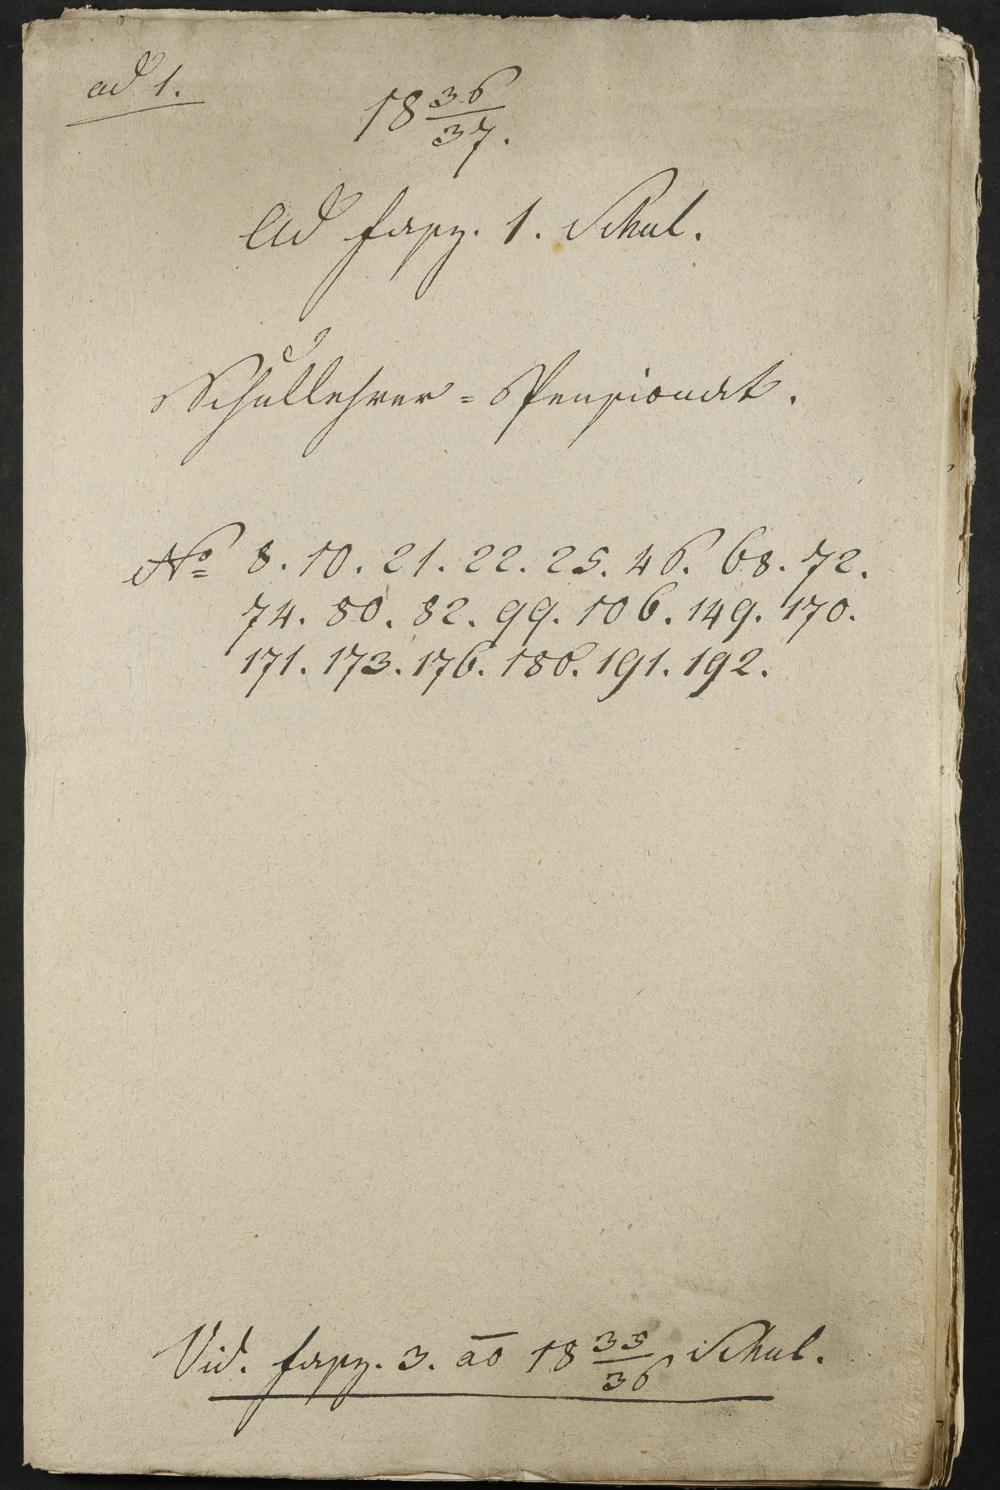 ad 1.
18 36/37.
Ad fasz. 1. Schul.
Schullehrer = Pensionat.
No 8. 10. 21. 22. 25. 46. 68. 72.
74. 80. 82. 99. 106. 149. 170.
171. 173. 176. 186. 191. 192.
Vid. fasz. 3. ao 18 35/36 Schul.